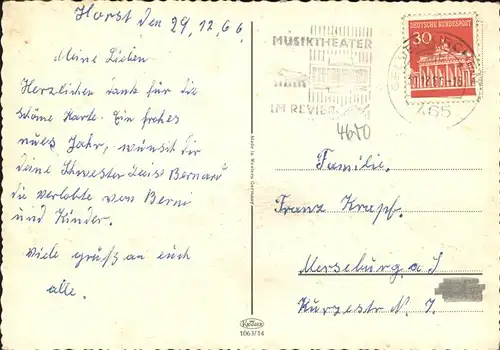 Horst den 29.12.66
Meine Lieben.
Herzlichen dank für die
schöne Karte. Ein frohes
neues Jahr, wünsit dir
deine Schwester Bernard
die verlobte von Bernd
und Kinder.
viele grüße an euch
alle.
MUSIKTHEATER
IM REVIER
DEUTSCHE BUNDESPOST
30
465
4600
Made in Western Germany
Krüger
1063/14
Familie.
Franz Krapf.
Merseburg a. S
Kurzestr N. 7.